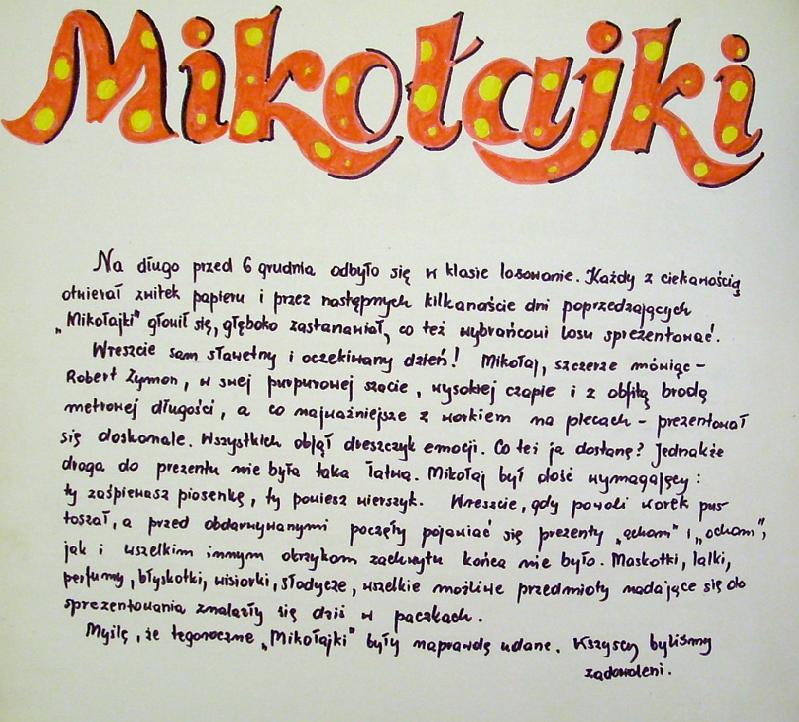 Mikołajki
Na długo przed 6 grudnia odbyło się w klasie losowanie. Każdy z ciekawością
otwierał zwitek papieru i przez następnych kilkanaście dni poprzedzających
„Mikołajki" głowił się, głęboko zastanawiał, co też wybrańcowi losu sprezentować.
Wreszcie sam sławetny i oczekiwany dzień! Mikołaj, szczerze mówiąc -
Robert Zymon, w swej purpurowej szacie, wysokiej czapie i z obfitą brodą
metrowej długości, a co najważniejsze z workiem na plecach - prezentował
się doskonale. Wszystkich objął dreszczyk emocji. Co też ja dostanę? Jednakże
droga do prezentu nie była taka łatwa. Mikołaj był dość wymagający:
ty zaśpiewasz piosenkę, ty powiesz wierszyk. Wreszcie, gdy powoli worek pus-
toszał, a przed obdarowywanymi poczęły pojawiać się prezenty „achom" i „ochom",
jak i wszelkim innym okrzykom zachwytu końca nie było. Maskotki, lalki,
perfumy, błyskotki, wisiorki, słodycze, wszelkie możliwe przedmioty nadające się do
sprezentowania znalazły się dziś w paczkach.
Myślę, że tegoroczne „Mikołajki" były naprawdę udane. Wszyscy byliśmy
zadowoleni.